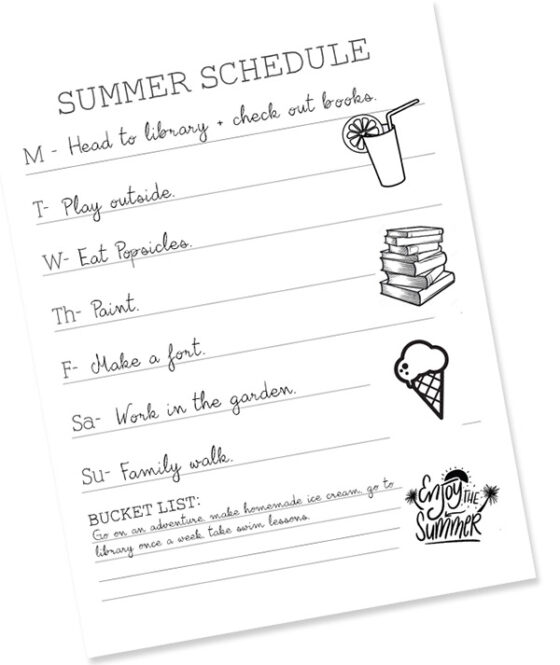 SUMMER SCHEDULE
M - Head to library + check out books.
T- Play outside.
W- Eat Popsicles.
Th- Paint.
F- Make a fort.
Sa- Work in the garden.
Su- Family walk.
BUCKET LIST:
Go on an adventure, make homemade ice cream, go to
library once a week, take swim lessons.
Enjoy THE
SUMMER